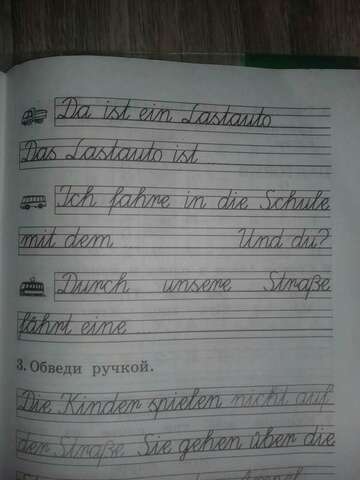 Da ist ein Lastauto
Das Lastauto ist ...
Ich fahre in die Schule
mit dem ... Und du?
Durch unsere Straße
fährt eine ...
3. Обведи ручкой.
Die Kinder spielen nicht auf
der Straße. Sie gehen über die